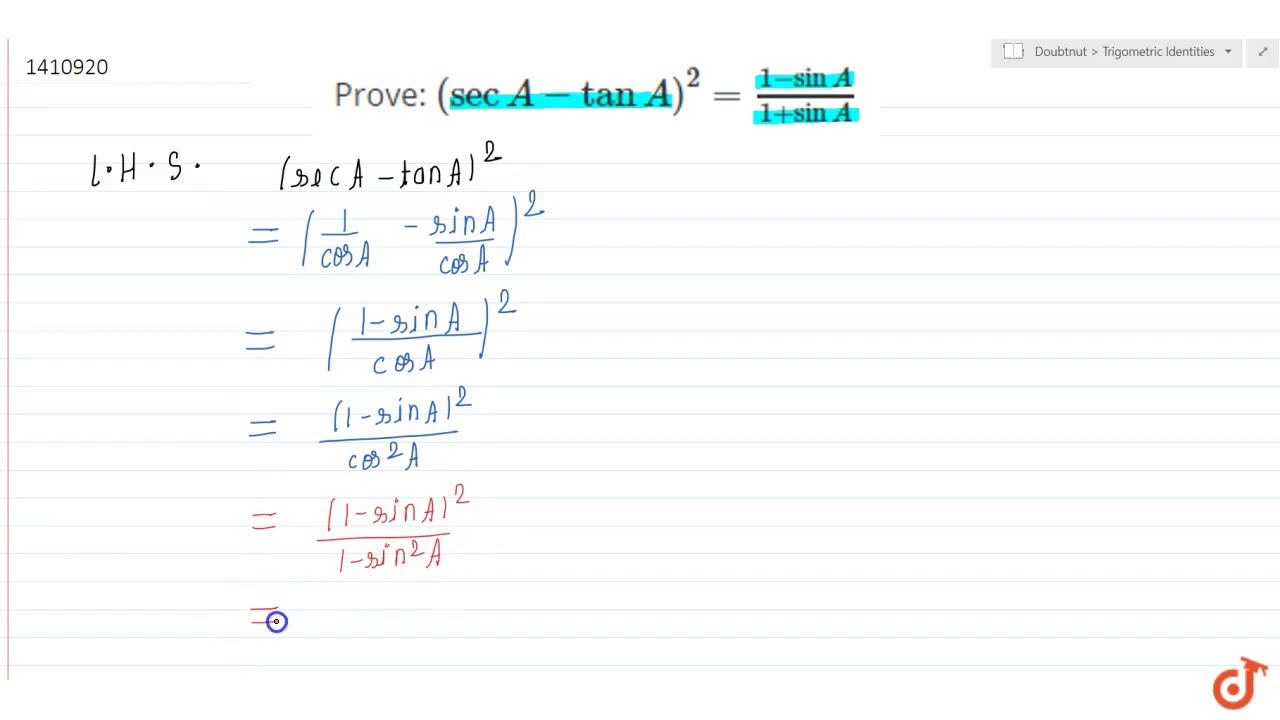 Doubtnut > Trigometric Identities
1410920
Prove: (sec A − tan A)² = (1−sin A)/(1+sin A)
L.H.S. (secA − tanA)²
= (1/cosA − sinA/cosA)²
= ((1−sinA)/cosA)²
= (1−sinA)²/cos²A
= (1−sinA)²/1−sin²A
=